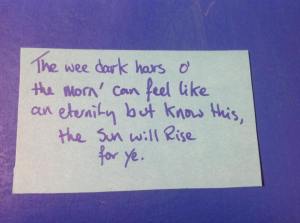 The wee dark hours o'
the morn' can feel like
an eternity but know this,
the Sun will Rise
for ye.